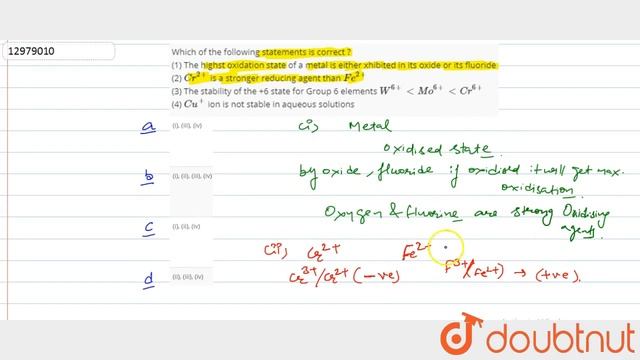 12979010
Which of the following statements is correct ?
(1) The highst oxidation state of a metal is either xhibited in its oxide or its fluoride
(2) Cr²⁺ is a stronger reducing agent than Fe²⁺
(3) The stability of the +6 state for Group 6 elements W⁶⁺ < Mo⁶⁺ < Cr⁶⁺
(4) Cu⁺ ion is not stable in aqueous solutions
a (i), (iii), (iv)
b (i), (ii), (iii), (iv)
c (i), (ii), (iv)
d (ii), (iii), (iv)
(i) Metal
oxidised state.
by oxide, fluoride if oxidised it will get max.
oxidisation.
Oxygen & fluorine are strong Oxidising
agents.
(ii) Cr²⁺ Fe²⁺
Cr³⁺/Cr²⁺ (-ve) F³⁺/(Fe²⁺) → (+ve).
doubtnut